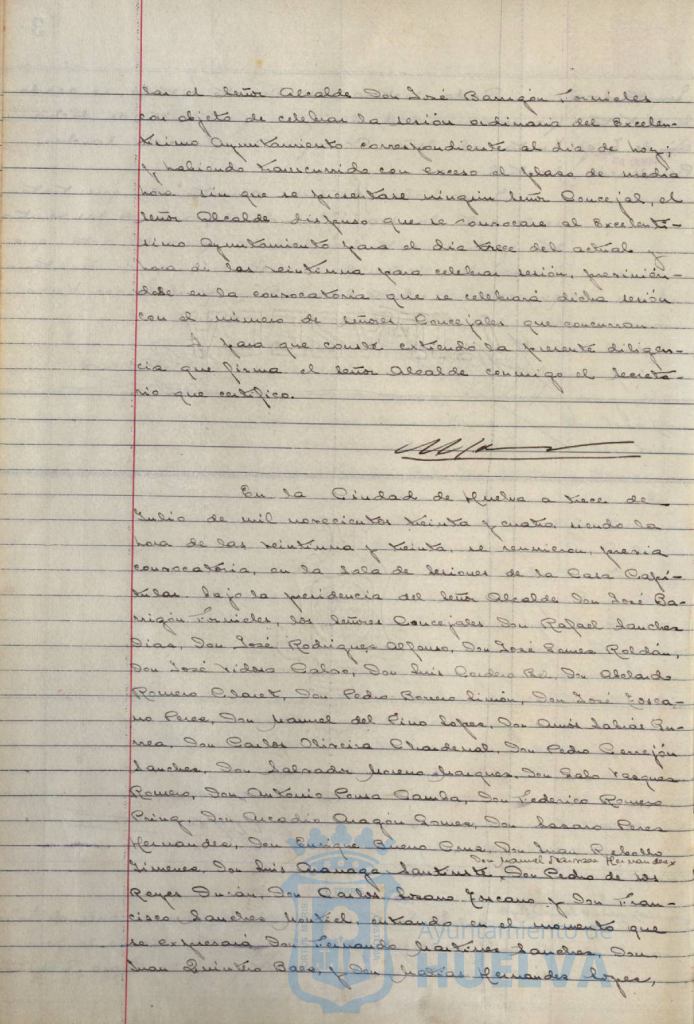 lar el Señor Alcalde Don José Barrigón Fornieles
con objeto de celebrar la sesión ordinaria del Excelen-
tísimo Ayuntamiento correspondiente al día de hoy;
y habiendo transcurrido con exceso el plazo de media
hora sin que se presentase ningún Señor Concejal, el
Señor Alcalde dispuso que se convocase al Excelentí-
simo Ayuntamiento para el día trece del actual y
hora de las veintiuna para celebrar sesión, previnién-
dose en la convocatoria que se celebrará dicha sesión
con el número de Señores Concejales que concurran.
Y para que conste extiendo la presente diligen-
cia que firma el Señor Alcalde conmigo el Secreta-
rio que certifico.
En la Ciudad de Huelva a trece de
Julio de mil novecientos treinta y cuatro, siendo la
hora de las veintiuna y treinta, se reunieron, previa
convocatoria, en la Sala de Sesiones de la Casa Capi-
tular bajo la presidencia del Señor Alcalde Don José Ba-
rrigón Fornieles, los Señores Concejales Don Rafael Sanchez
Díaz, Don José Rodriguez Alfonso, Don José Gomez Roldán,
Don José Vidosa Calvo, Don Luis Cordero Bel, Don Abelardo
Romero Claret, Don Pedro Borrero Limón, Don José Tosca-
no Perez, Don Manuel del Pino Lopez, Don Amós Sabrás Gu-
rrea, Don Carlos Oliveira Chardenal, Don Pedro Cerrejón
Sanchez, Don Salvador Moreno Marquez, Don Galo Vazquez
Romero, Don António Ponsa Gamba, Don Federico Romero
Pring, Don Arcadio Aragón Gomez, Don Lazaro Perez
Hernandez, Don Enrique Bueno Cruz, Don Juan Rebollo
Jimenez, Don Luis Santisteb, Don Manuel Narvaez Hernandez, Don Pedro de los
Reyes Durán, Don Carlos Lozano Toscano y Don Fran-
cisco Sanchez Montiel, entrando en el momento que
se expresará Don Fernando Martinez Sanchez, Don
Juan Quintero Baez, y Don Matías Hernandez Lopez,
Ayuntamiento de
HUELVA